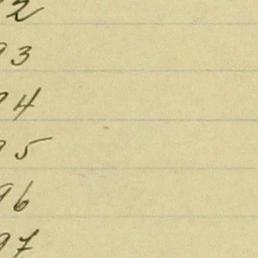 92
93
94
95
96
97